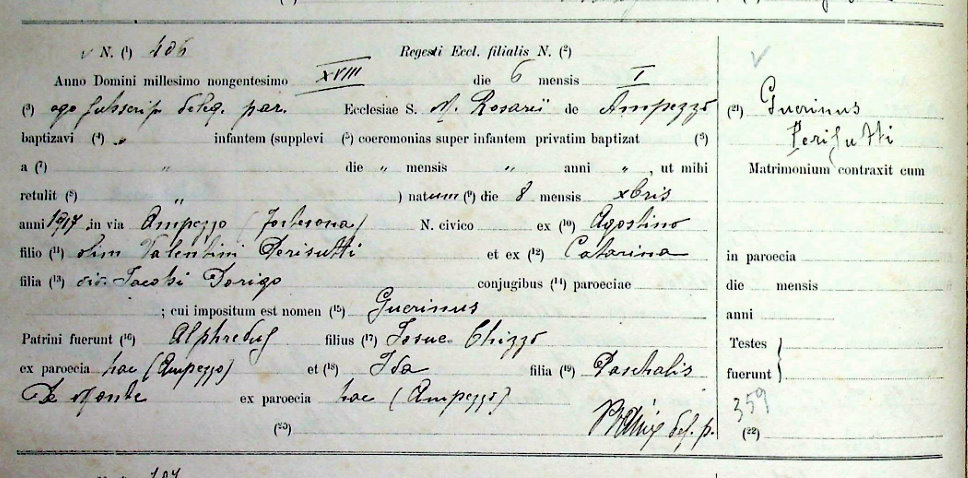 N. (1) 406 Regesti Eccl. filialis N. (2)
Anno Domini millesimo nongentesimo XVIII die 6 mensis I
(3) ego subscrip. deleg. par. Ecclesiae S. M. Rosarii de Ampezzo
baptizavi (4) " infantem (supplevi (5) coeremonias super infantem privatim baptizat (6)
a (7) " die " mensis " anni " , ut mihi
retulit (8) ) natum (9) die 8 mensis xbris
anni 1917 , in via Ampezzo ( ) N. civico ex (10) Agostino
filio (11) olim Valentini Perisutti et ex (12) Catarina
filia (13) Jacobi Dorigo conjugibus (14) paroeciae
; cui impositum est nomen (15) Guerinus
Patrini fuerunt (16) Alphredus filius (17) Josue Chizzo
ex paroecia hac (Ampezzo) et (18) Ida filia (19) Paschalis
De Monte ex paroecia hac (Ampezzo)
(20) del. p.
(21) Guerinus
Perisutti
Matrimonium contraxit cum
in paroecia
die mensis
anni
Testes }
fuerunt }
359
(22)